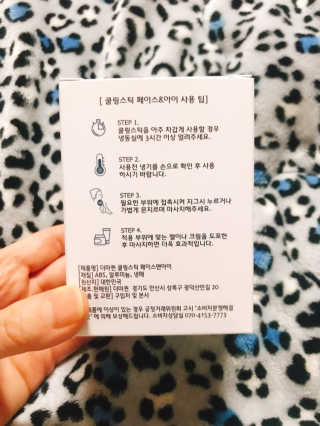 [ 쿨링스틱 페이스&아이 사용 팁]
STEP 1.
쿨링스틱을 아주 차갑게 사용할 경우
냉동실에 3시간 이상 얼려주세요.
STEP 2.
사용전 냉기를 손으로 확인 후 사용
하시기 바랍니다.
STEP 3.
필요한 부위에 접촉시켜 지그시 누르거나
가볍게 문지르며 마사지해주세요.
STEP 4.
적용 부위에 맞는 젤이나 크림을 도포한
후 마사지하면 더욱 효과적입니다.
[제품명] 더마펜 쿨링스틱 페이스앤아이
[재질] ABS, 알루미늄, 냉매
원산지] 대한민국
제조.판매원] 더마펜 경기도 안산시 상록구 광덕산안길 20
및 교환] 구입처 및 본사
제품에 이상이 있는 경우 공정거래위원회 고시 "소비자분쟁해결
에 의해 보상해드립니다. 소비자상담실 070-4153-7773